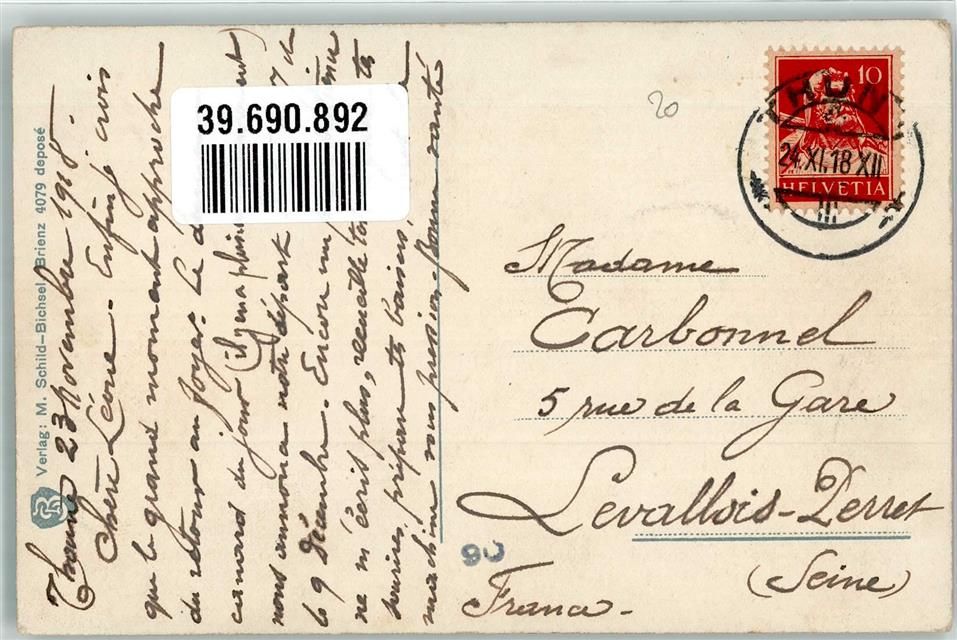 Verlag: M. Schild-Bichsel, Brienz 4079 deposé
Thoune 23 novembre 1918.
Chère Léone. Enfin je crois
que le grand moment approche
du retour au foyer. Le d
canard du jour (il y en a plusi
nous annonce notre départ
le 9 Décembre. Encore un
ne m'écris plus,
sourires, prépare tes baisers,
vous presser, bonne santé
39.690.892
20
10
HELVETIA
THUN
24.XI.18 XII
Madame
Carbonnel
5 rue de la Gare
Levallois-Perret
(Seine)
90
France.